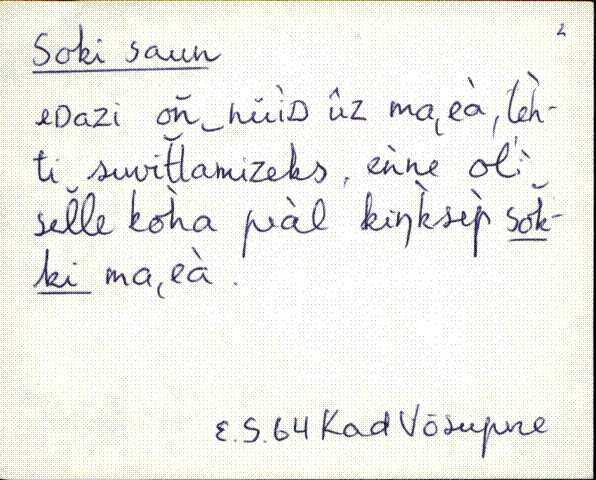 2
Soki saun
eDazi oǹ‿nüìD ûz maɩeà, lèh-
ti suvìt̆lamizeks, eǹne olì
sel̆le koh̀a piàl kiŋksèp̀ sŏk-
ki maɩeà.
E.S. 64 Kad Võsupne